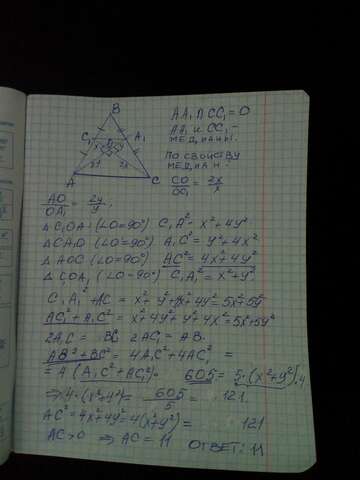 B
C₁ A₁
O
x y
2y 2x
A C
AA₁ ∩ CC₁ = O
AA₁ и CC₁ -
медианы.
по свойству
медиан
CO/OC₁ = 2x/x
AO/OA₁ = 2y/y.
Δ C₁OA (∠O=90°) C₁A² = x²+4y²
Δ CA₁O (∠O=90°) A₁C² = y²+4x²
Δ AOC (∠O=90°) AC² = 4x²+4y²
Δ C₁OA₁ (∠O=90°) C₁A₁² = x²+y²
C₁A₁² + AC² = x²+y²+4x²+4y² = 5x²+5y²
AC₁² + A₁C² = x²+4y²+y²+4x² = 5x²+5y²
2A₁C = BC 2AC₁ = AB.
AB²+BC² = 4A₁C²+4AC₁² =
= 4(A₁C²+AC₁²). 605 = 5·(x²+y²)·4
⇒ 4·(x²+y²) = 605/5 = 121.
AC² = 4x²+4y² = 4(x²+y²) = 121
AC>0 ⇒ AC = 11 Ответ: 11